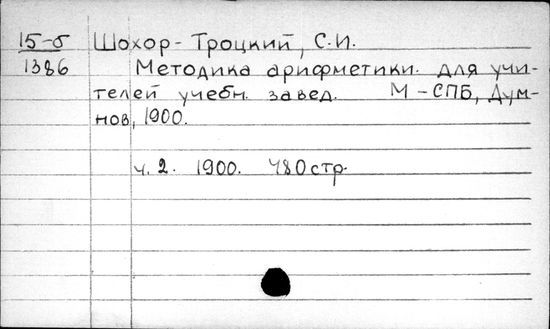 15-б Шохор-Троцкий, С.И.
1386 Методика арифметики для учи-
телей учебн. завед. М-СПБ, Дум-
нов, 1900.
ч. 2. 1900. 480 стр.